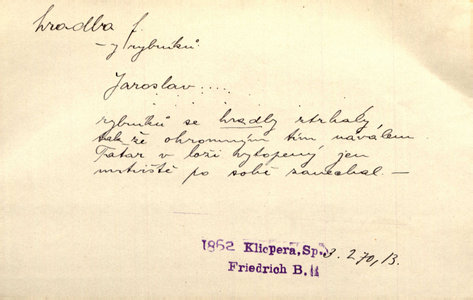 hradba f.
– z rybníků
Jaroslav....
rybníků se hradby strhaly
tak že ohromným tím návalem
Tatar v loži vytopený jen
mrtviště po sobě zanechal. –
1862 Klicpera, Sp. 3. 270, B.
Friedrich B.